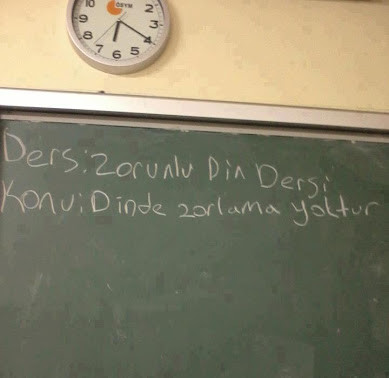 10
2
9
3
8
4
7
6
5
ÖSYM
Ders: Zorunlu Din Dersi
Konu: Dinde zorlama yoktur